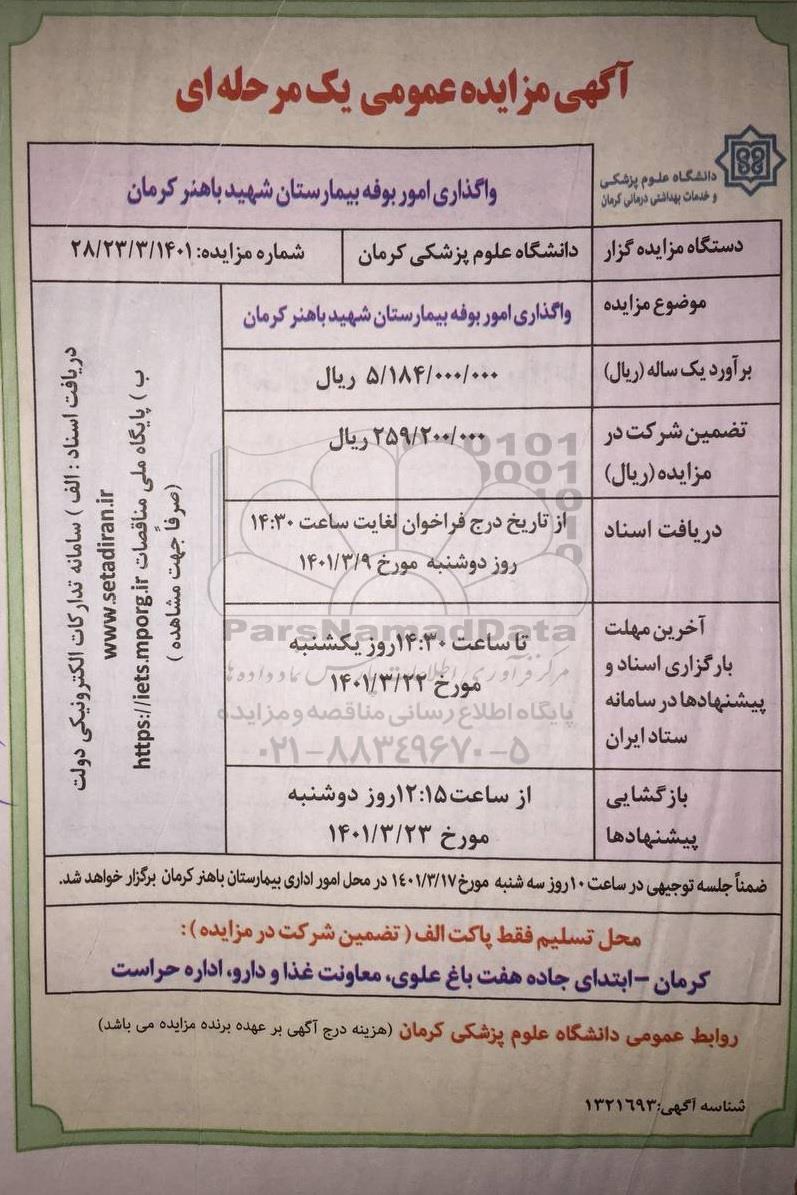 آگهی مزایده عمومی یک مرحله ای
دانشگاه علوم پزشکی
و خدمات بهداشتی درمانی کرمان
واگذاری امور بوفه بیمارستان شهید باهنر کرمان
دستگاه مزایده گزار
دانشگاه علوم پزشکی کرمان
شماره مزایده: ۲۸/۲۳/۳/۱۴۰۱
موضوع مزایده
واگذاری امور بوفه بیمارستان شهید باهنر کرمان
برآورد یک ساله (ریال)
۵/۱۸۴/۰۰۰/۰۰۰ ریال
تضمین شرکت در
مزایده (ریال)
۲۵۹/۲۰۰/۰۰۰ ریال
دریافت اسناد
از تاریخ درج فراخوان لغایت ساعت ۱۴:۳۰
روز دوشنبه مورخ ۱۴۰۱/۳/۹
آخرین مهلت
بارگزاری اسناد و
پیشنهادها در سامانه
ستاد ایران
تا ساعت ۱۴:۳۰روز یکشنبه
مورخ ۱۴۰۱/۳/۲۲
بازگشایی
پیشنهادها
از ساعت۱۲:۱۵روز دوشنبه
مورخ ۱۴۰۱/۳/۲۳
دریافت اسناد : الف ) سامانه تدارکات الکترونیکی دولت
www.setadiran.ir
ب ) پایگاه ملی مناقصات https://iets.mporg.ir
(صرفاً جهت مشاهده )
ضمناً جلسه توجیهی در ساعت ۱۰روز سه شنبه مورخ۱۴۰۱/۳/۱۷ در محل امور اداری بیمارستان باهنر کرمان برگزار خواهد شد.
محل تسلیم فقط پاکت الف ( تضمین شرکت در مزایده ) :
کرمان – ابتدای جاده هفت باغ علوی، معاونت غذا و دارو، اداره حراست
روابط عمومی دانشگاه علوم پزشکی کرمان (هزینه درج آگهی بر عهده برنده مزایده می باشد)
شناسه آگهی:۱۳۲۱۶۹۳
ParsNamadData
مرکز فرآوری اطلاعات پارس نماد داده ها
پایگاه اطلاع رسانی مناقصه و مزایده
۰۲۱-۸۸۳۴۹۶۷۰-۵